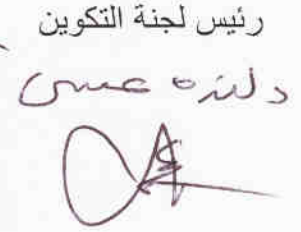 رئيس لجنة التكوين
دلنده عيسى